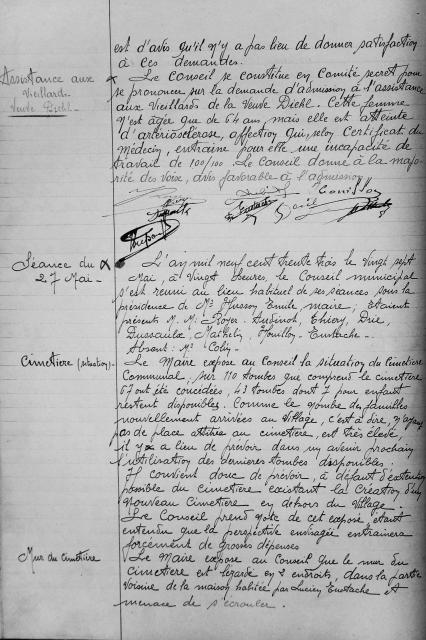 est d'avis qu'il n'y a pas lieu de donner satisfaction
à ces demandes.
Assistance aux
Vieillards
Veuve Diehl.
Le Conseil se constitue en Comité secret pour
se prononcer sur la demande d'admission à l'assistance
aux Vieillards de la Veuve Diehl. Cette femme
n'est âgée que de 64 ans, mais elle est atteinte
d'artériosclérose, affection qui, selon certificat du
Médecin, entraine pour elle une incapacité de
travail de 100/100. Le Conseil donne à la majo-
rité des voix, avis favorable à l'admission.
Séance du
27 Mai -
L'an mil neuf cent trente trois le vingt sept
Mai, à vingt heures, le Conseil municipal
s'est réuni au lieu habituel de ses séances sous la
présidence de Mr Husson Emile maire. Etaient
présents M.M. Royer, Aubinot, Thiery, Drie,
Dussaulx, Mathelin, Houillon, Eustache -
Absent: Mr Colin.
Cimetière (situation) -
Le Maire expose au Conseil la situation du cimetière
Communal, sur 110 tombes que comprend le cimetière
67 ont été concédées, 43 tombes dont 7 pour enfant
restent disponibles. Comme le nombre des familles
nouvellement arrivées au village, c'est à dire, n'ayant
pas de place attitrée au cimetière, est très élevé,
il y a lieu de prévoir dans un avenir prochain
l'utilisation des dernières tombes disponibles.
Il convient donc de prévoir, à défaut d'extension
possible du cimetière existant la création d'un
nouveau cimetière en dehors du village.
Le Conseil prend note de cet exposé, étant
entendu que la perspective envisagée entrainera
forcément de grosses dépenses
Mur du cimetière
Le Maire expose au Conseil que le mur du
cimetière est lézardé en 2 endroits, dans la partie
voisine de la maison habitée par Lucien Eustache et
menace de s'écrouler.